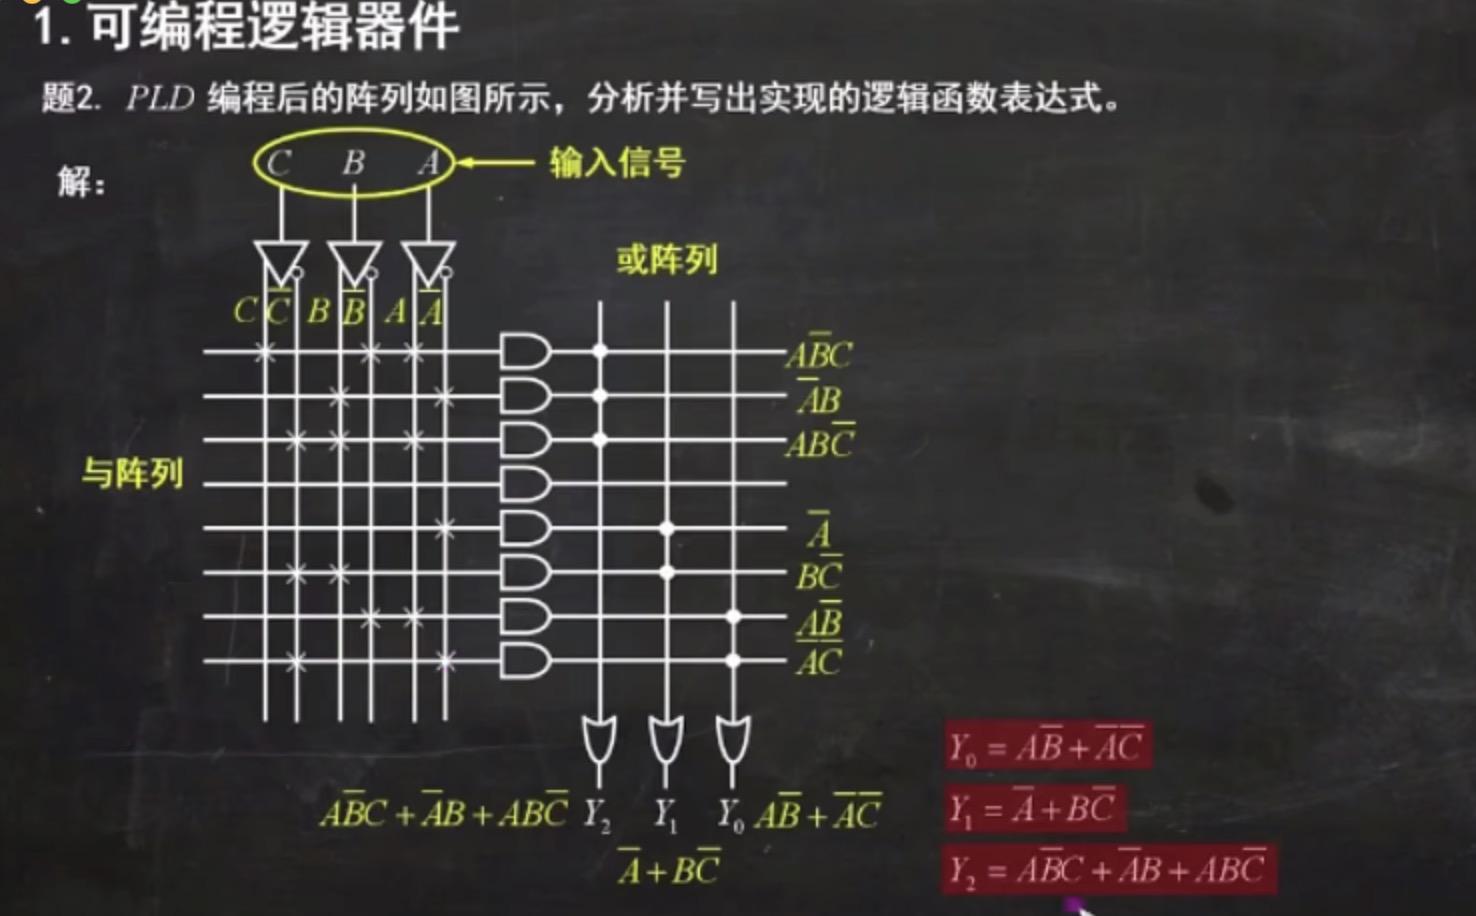 1. 可编程逻辑器件
题2. PLD 编程后的阵列如图所示，分析并写出实现的逻辑函数表达式。
解：
C B A 输入信号
或阵列
C C̅ B B̅ A A̅
AB̅C
A̅B
ABC̅
与阵列
A̅
BC̅
AB̅
A̅C̅
AB̅C + A̅B + ABC̅ Y₂ Y₁ Y₀ AB̅ + A̅C̅
A̅ + BC̅
Y₀ = AB̅ + A̅C̅
Y₁ = A̅ + BC̅
Y₂ = AB̅C + A̅B + ABC̅